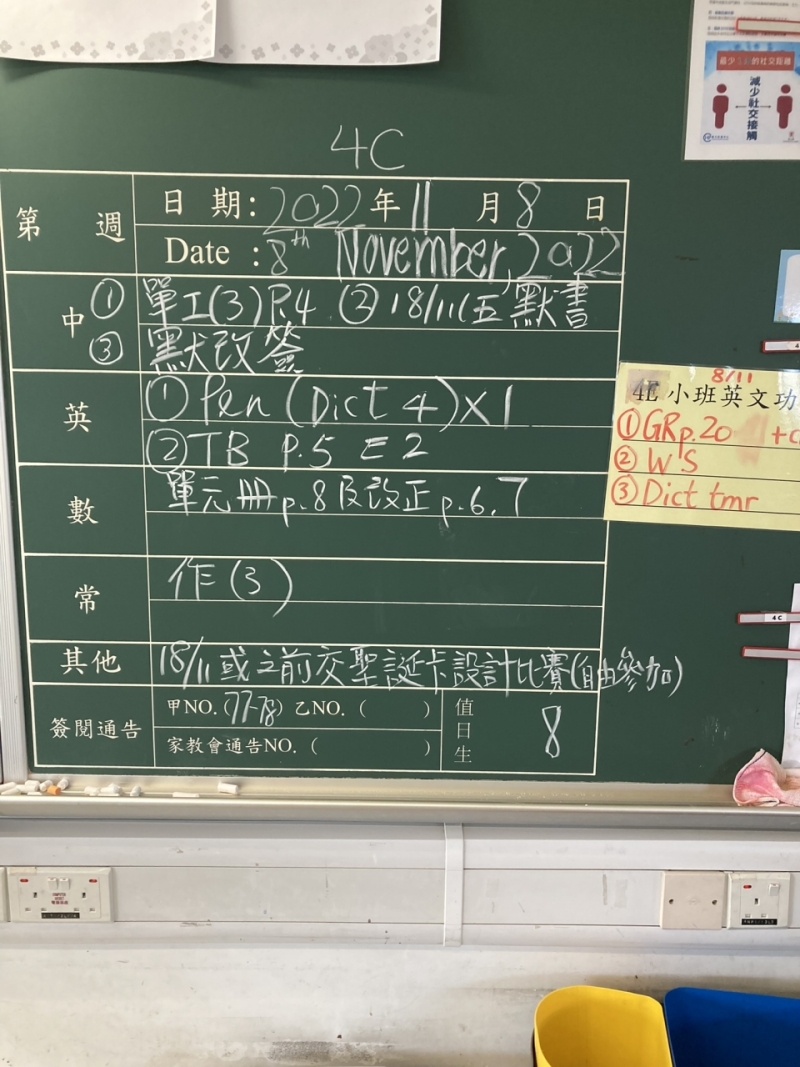 4C
第 週
日 期: 2022 年 11 月 8 日
Date : 8th November, 2022
中 ① 單工(3) P.4 ② 18/11(五 默書
③ 默改簽
英 ① Pen (Dict 4) X 1
② TB P.5 E 2
數 單元冊 p.8 及改正 p.6, 7
常 作 (3)
其他 18/11 或之前交聖誕卡設計比賽(自由參加)
簽閱通告 甲NO. (77-78) 乙NO. ( )
家教會通告NO. ( )
值日生 8
8/11
小班英文功
① GR p.20
② WS
③ Dict tmr
減少社交接觸
4C